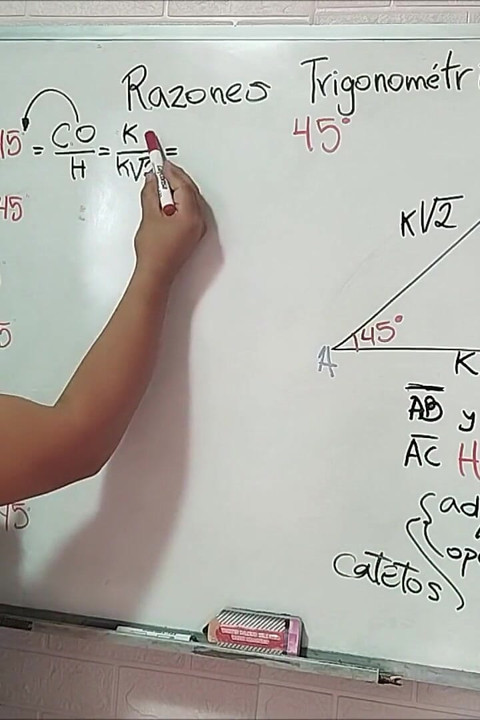 Razones Trigonométri
45°
45 = C.O/H = K/K√2 =
45
K√2
45°
A
K
AB y
AC H
ad
op
catetos
45